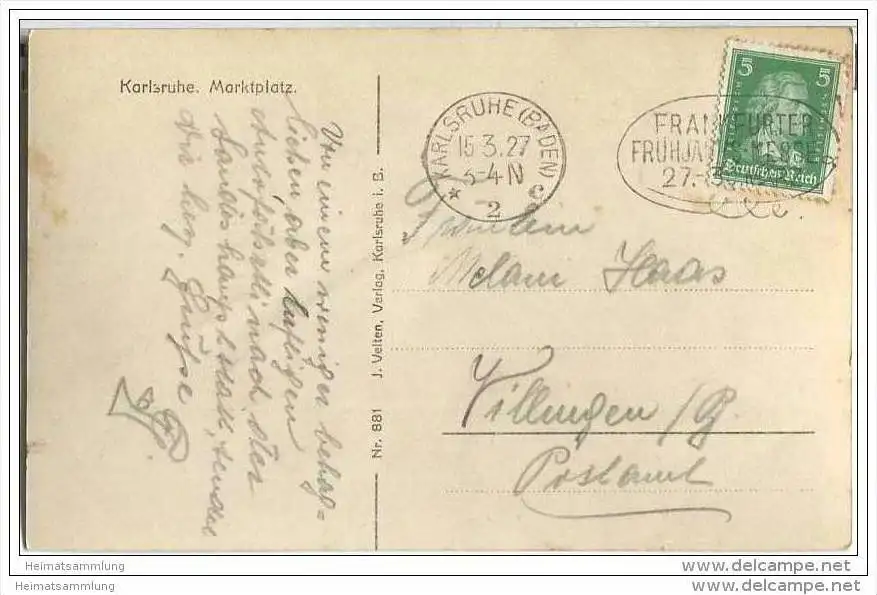 Karlsruhe. Marktplatz.
Von einem weniger behag=
lichen, aber luftigen
Autofahrt nach der
Landeshauptstadt, sendet
Dir herz. Grüße
Nr. 881 J. Velten, Verlag, Karlsruhe i. B.
KARLSRUHE (BADEN)
15.3.27
3-4 N
* 2 c
FRANKFURTER
FRÜHJAHRS-MESSE
27.-30.
5 5
Deutsches Reich
Fräulein
Melani Haas
Villingen /B.
Postamt
Heimatsammlung
www.ansichtskartenversand.com
Heimatsammlung
www.ansichtskartenversand.com